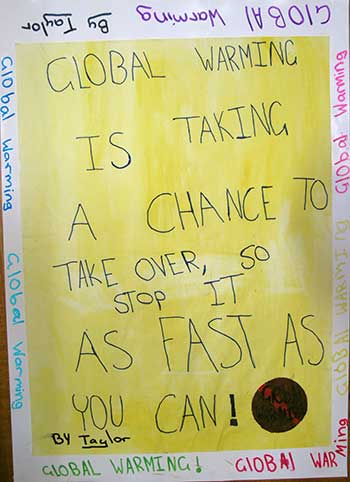 GLOBAL WARMING
IS TAKING
A CHANCE TO
TAKE OVER, SO
STOP IT
AS FAST AS
YOU CAN!
BY Taylor
GLOBAL WARMING!
GlOBAl WARMing
GlObal Warming
GlObal Warming
By Taylor
GlOBAl Warming
GlObal Warming
GlOBAl WARMING